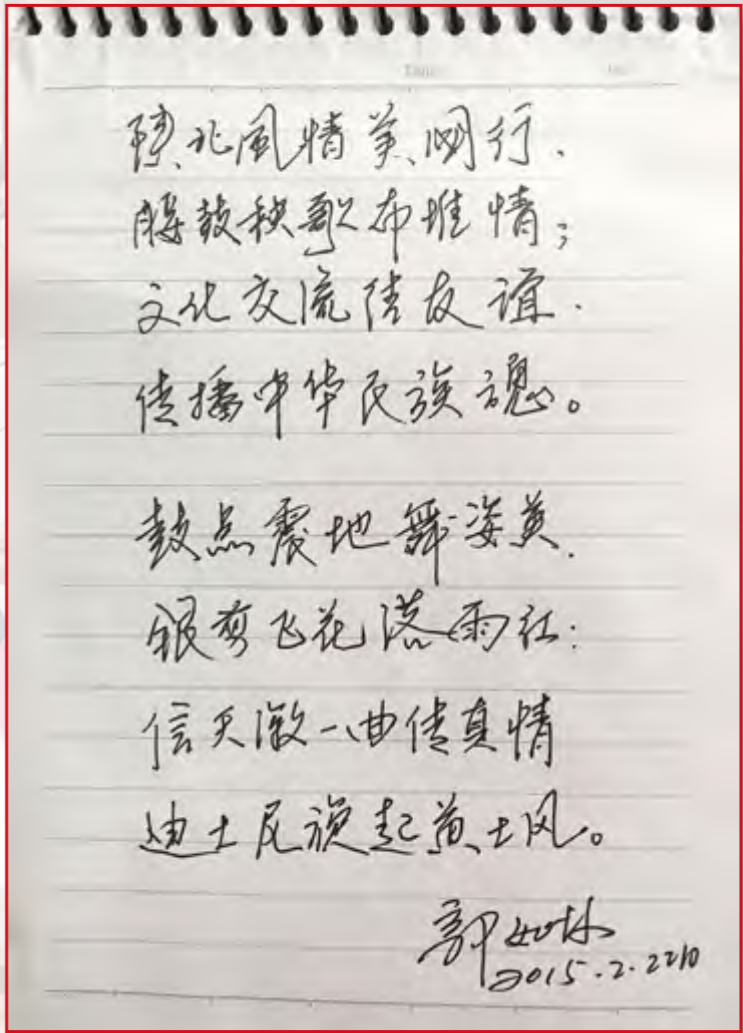 陕北風情美网行.
腰鼓秧歌布堆情;
文化交流结友谊.
传播中华民族魂。
鼓点震地舞姿美.
银剪飞花落雨红:
信天激一曲传真情
迪士尼演起黄土风。
郭如林
2015.2.22